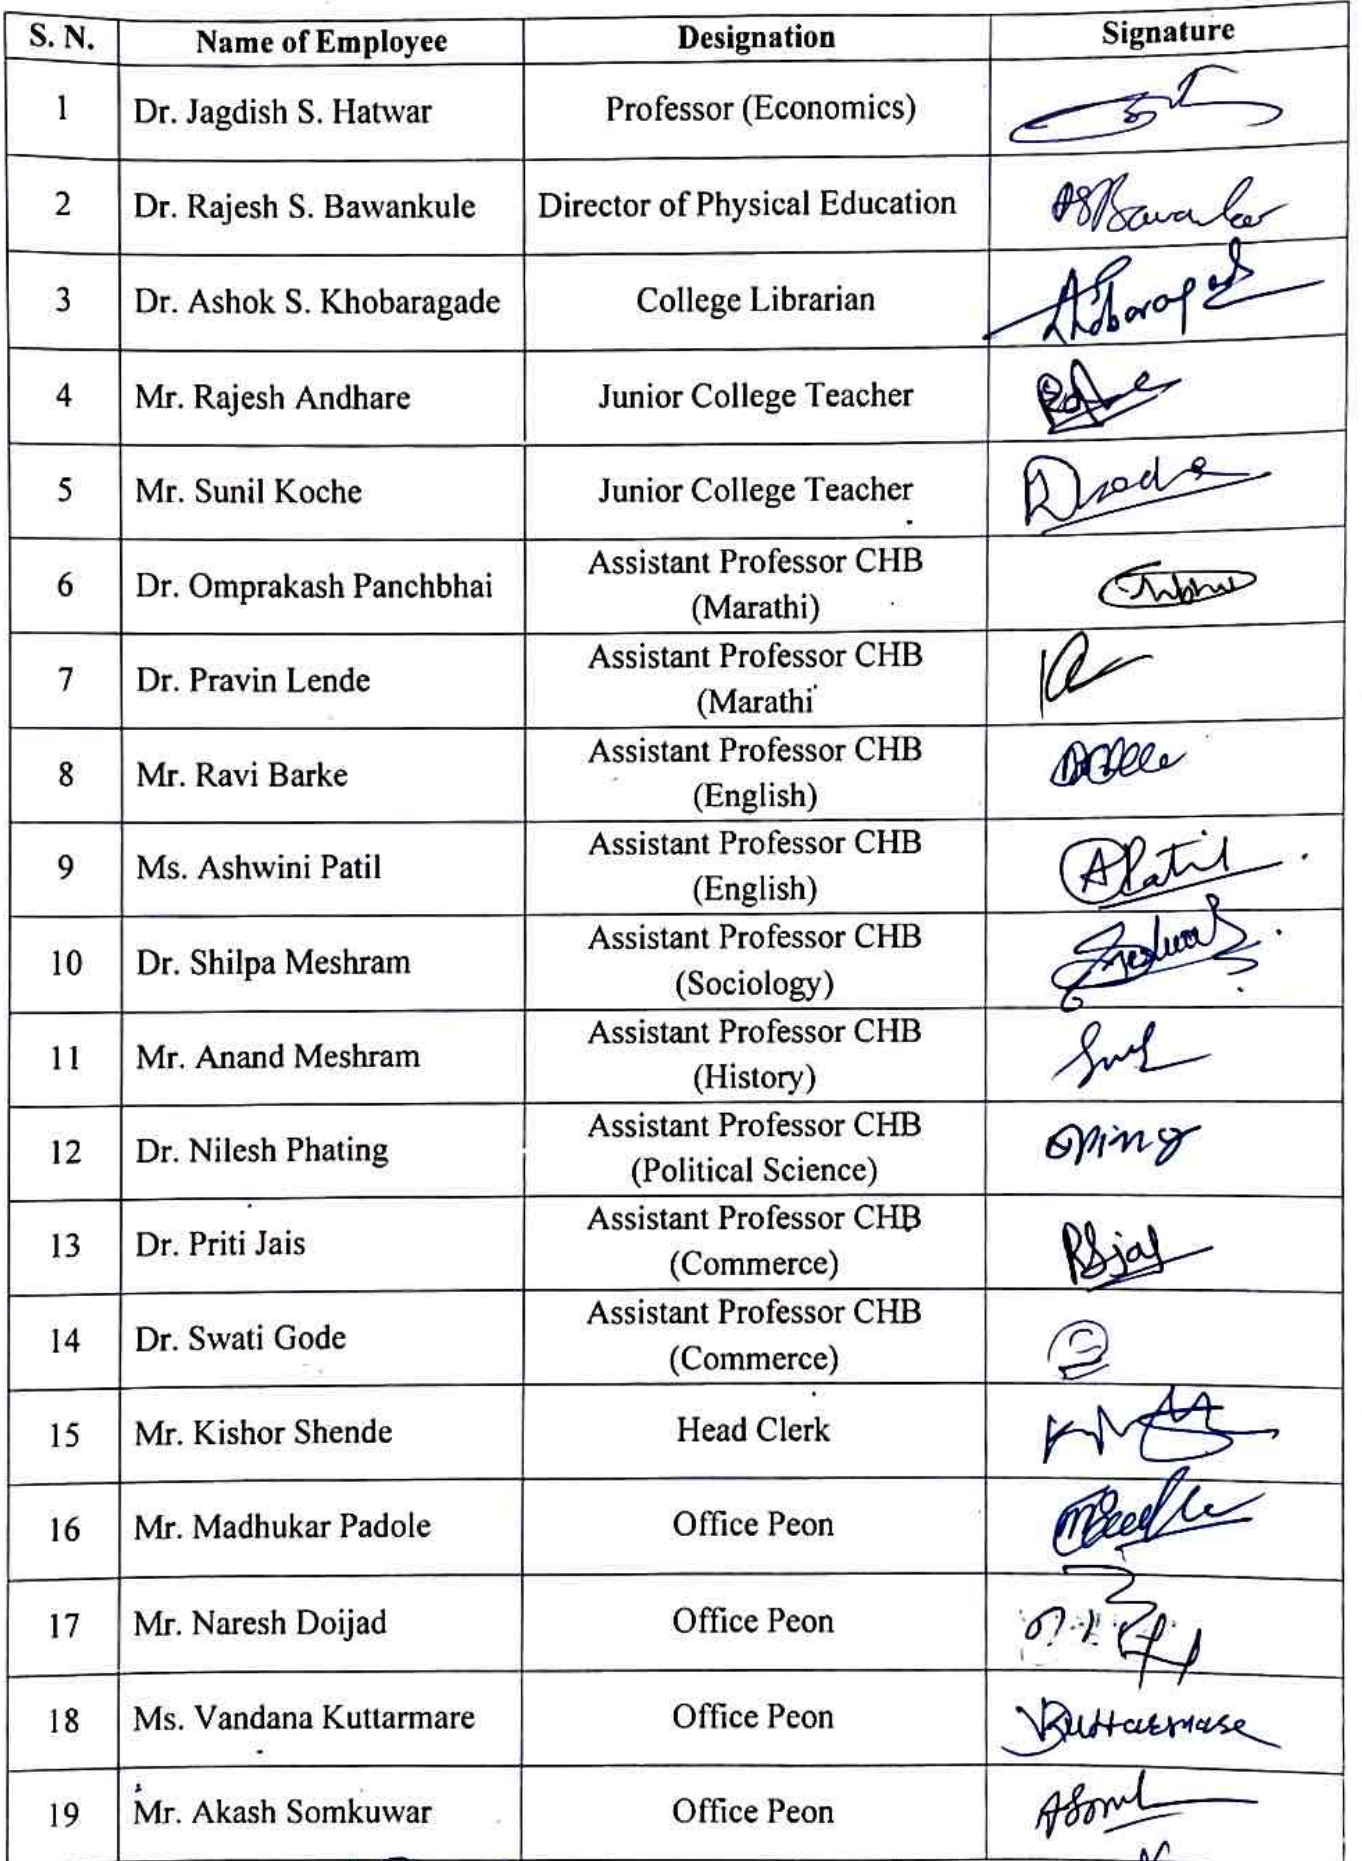 S. N. Name of Employee Designation Signature
1 Dr. Jagdish S. Hatwar Professor (Economics)
2 Dr. Rajesh S. Bawankule Director of Physical Education
3 Dr. Ashok S. Khobaragade College Librarian
4 Mr. Rajesh Andhare Junior College Teacher
5 Mr. Sunil Koche Junior College Teacher
6 Dr. Omprakash Panchbhai Assistant Professor CHB
(Marathi)
7 Dr. Pravin Lende Assistant Professor CHB
(Marathi
8 Mr. Ravi Barke Assistant Professor CHB
(English)
9 Ms. Ashwini Patil Assistant Professor CHB
(English) APatil
10 Dr. Shilpa Meshram Assistant Professor CHB
(Sociology)
11 Mr. Anand Meshram Assistant Professor CHB
(History)
12 Dr. Nilesh Phating Assistant Professor CHB
(Political Science)
13 Dr. Priti Jais Assistant Professor CHB
(Commerce)
14 Dr. Swati Gode Assistant Professor CHB
(Commerce)
15 Mr. Kishor Shende Head Clerk
16 Mr. Madhukar Padole Office Peon
17 Mr. Naresh Doijad Office Peon
18 Ms. Vandana Kuttarmare Office Peon
19 Mr. Akash Somkuwar Office Peon